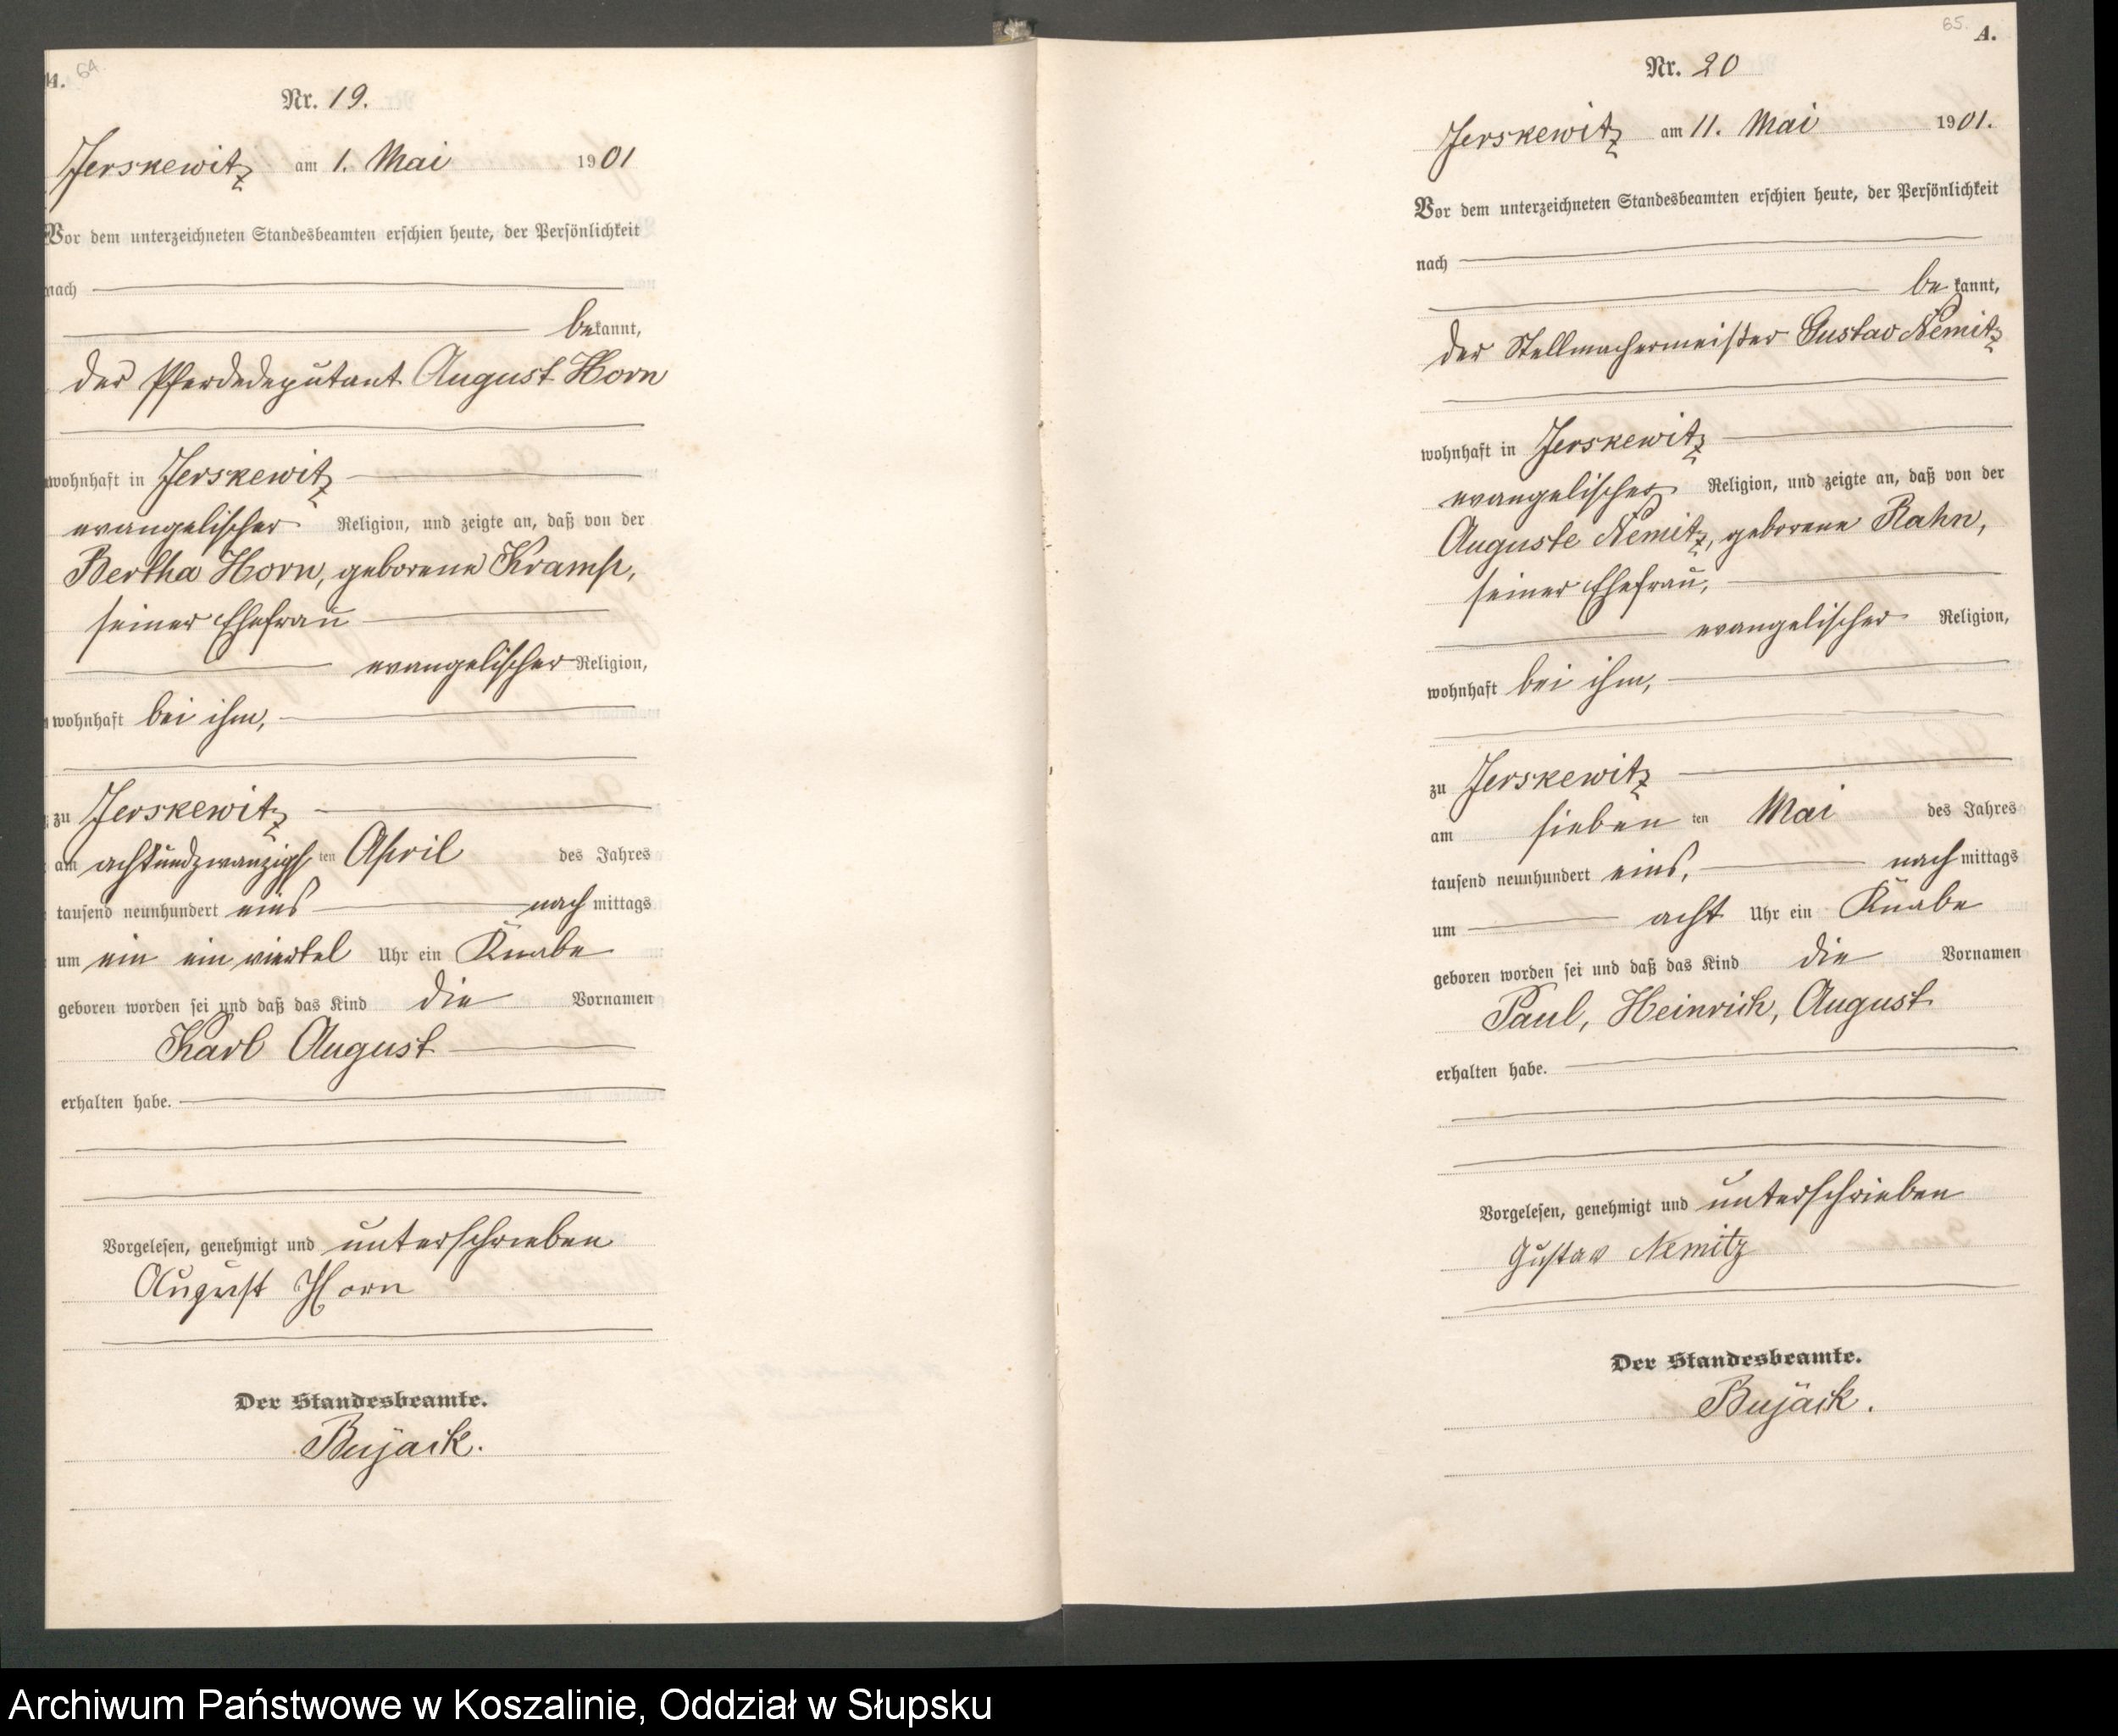 64
Nr. 19.
Jerskewitz am 1. Mai 1901
Vor dem unterzeichneten Standesbeamten erschien heute, der Persönlichkeit
nach
bekannt,
der Pferdedeputant August Horn
wohnhaft in Jerskewitz
evangelischer Religion, und zeigte an, daß von der
Bertha Horn, geborene Kramp,
seiner Ehefrau
evangelischer Religion,
wohnhaft bei ihm,
zu Jerskewitz
am achtundzwanzigsten April des Jahres
tausend neunhundert eins nachmittags
um ein ein viertel Uhr ein Knabe
geboren worden sei und daß das Kind die Vornamen
Karl August
erhalten habe.
Vorgelesen, genehmigt und unterschrieben
August Horn
Der Standesbeamte.
Bujack.
65.
A.
Nr. 20
Jerskewitz am 11. Mai 1901.
Vor dem unterzeichneten Standesbeamten erschien heute, der Persönlichkeit
nach
bekannt,
der Stellmachermeister Gustav Nemitz
wohnhaft in Jerskewitz
evangelischer Religion, und zeigte an, daß von der
Auguste Nemitz, geborene Rahn,
seiner Ehefrau,
evangelischer Religion,
wohnhaft bei ihm,
zu Jerskewitz
am siebenten Mai des Jahres
tausend neunhundert eins, nachmittags
um acht Uhr ein Knabe
geboren worden sei und daß das Kind die Vornamen
Paul, Heinrich, August
erhalten habe.
Vorgelesen, genehmigt und unterschrieben
Gustav Nemitz
Der Standesbeamte.
Bujack.
Archiwum Państwowe w Koszalinie, Oddział w Słupsku